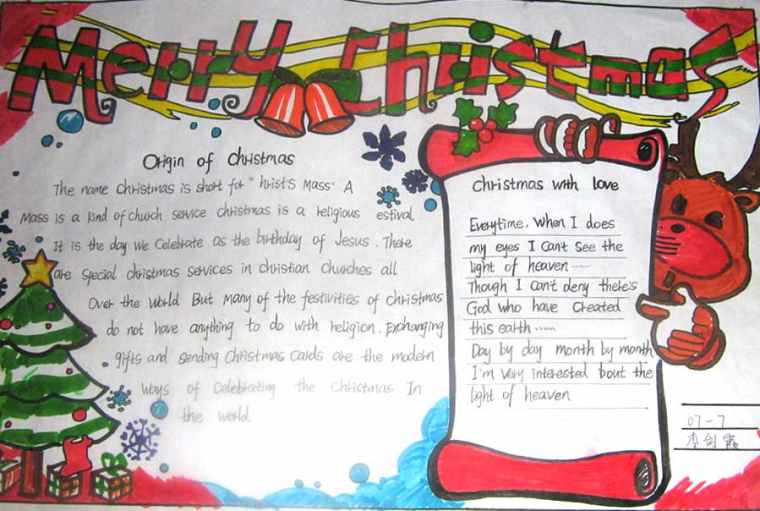 Merry Christmas
Origin of Christmas
The name christmas is short for "hrist's Mass" A
Mass is a kind of church service christmas is a religious estival
It is the day we celebrate as the birthday of Jesus. There
are special christmas services in christian churches all
Over the world But many of the festivities of christmas
do not have anything to do with religion. Exchanging
gifts and sending Christmas cards are the modern
ways of celebrating the christmas In
the world
Christmas with love
Everytime, When I does
my eyes I can't see the
light of heaven ······
Though I can't deny there's
God who have created
this earth ······
Day by day month by month
I'm very interested 'bout the
light of heaven
07-7
李剑